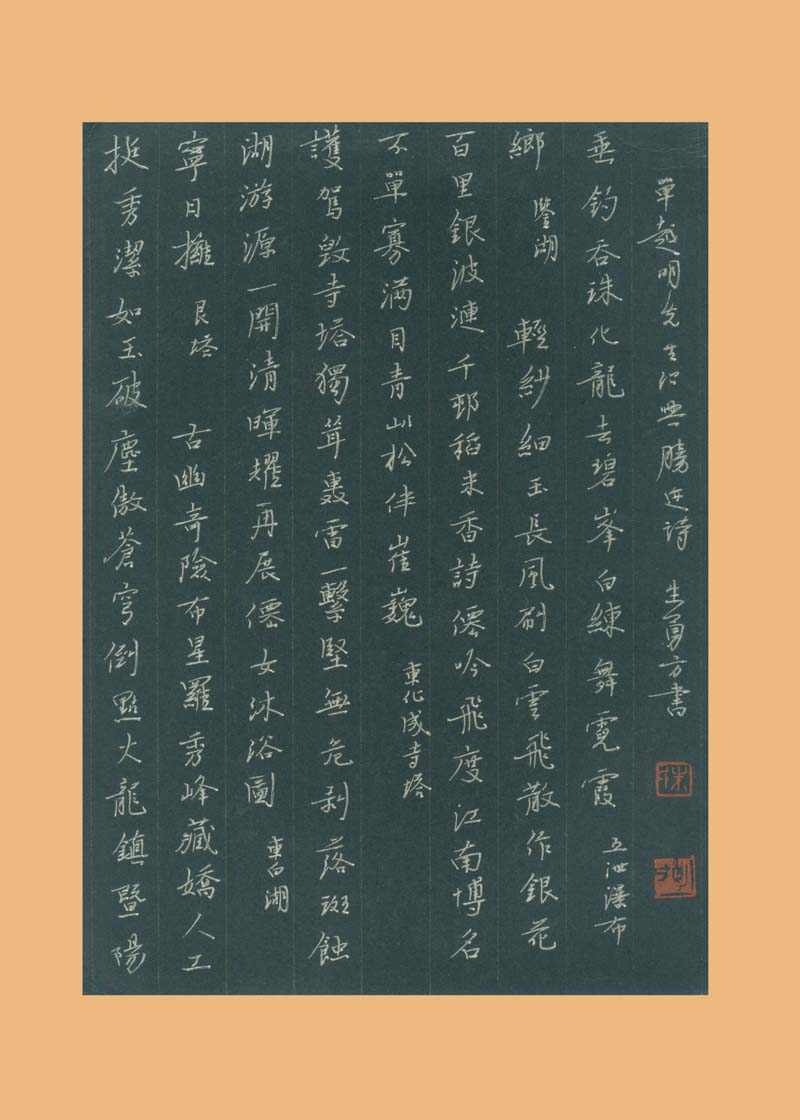 挺秀潔如玉破塵傲蒼穹倒點火龍鎮暨陽
寧日擁 艮塔 古幽奇險布星羅秀峰藏嬌人工
湖游源一開清暉耀再展僊女沐浴圖 東白湖
護駕毀寺塔獨聳轟雷一擊堅無危剥落斑蝕
不單寡滿目青山松伴崔巍 東化成寺塔
百里銀波漣千邨稻米香詩僊吟飛度江南博名
鄉 鑒湖 輕紗細玉長風刷白雲飛散作銀花
垂釣吞珠化龍去碧峯白練舞霓霞 五泄瀑布
單越明先生紹興勝迹詩 生勇方書